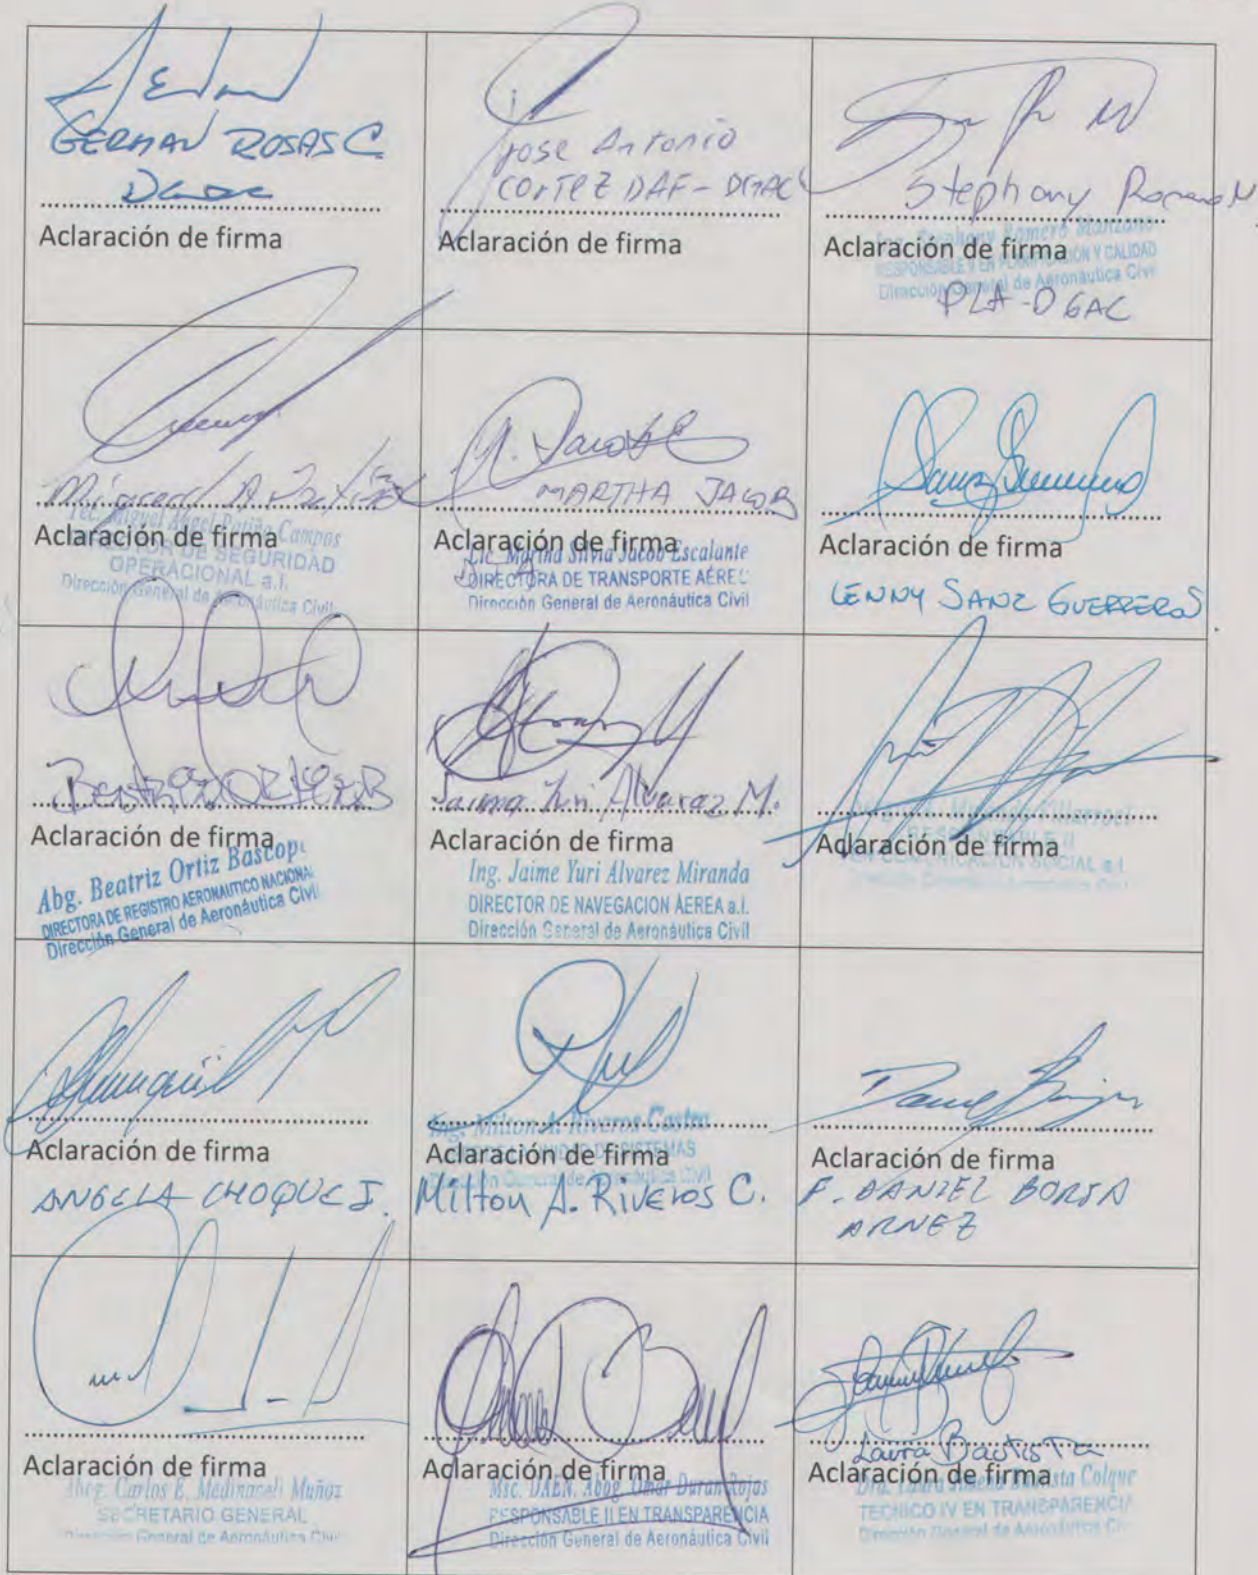 GERMAN ROSAS C.
Aclaración de firma
Jose Antonio
CORTEZ DAF - DGAC
Aclaración de firma
Stephany Romero M
Aclaración de firma
Ing. Stephany Romero Manzano
RESPONSABLE II EN PLANIFICACIÓN Y CALIDAD
Dirección General de Aeronáutica Civil
PLA - DGAC
Miguel A. Patiño
Aclaración de firma
Tec. Miguel Angel Patiño Campos
DIRECTOR DE SEGURIDAD
OPERACIONAL a.i.
Dirección General de Aeronáutica Civil
MARTHA JACOB
Aclaración de firma
Lic. Martha Silvia Jacob Escalante
DIRECTORA DE TRANSPORTE AÉREO
Dirección General de Aeronáutica Civil
Aclaración de firma
LENNY SANZ GUERREROS
Beatriz ORTIZ B
Aclaración de firma
Abg. Beatriz Ortiz Bascopé
DIRECTORA DE REGISTRO AERONAUTICO NACIONAL
Dirección General de Aeronáutica Civil
Jaime Yuri Alvarez M.
Aclaración de firma
Ing. Jaime Yuri Alvarez Miranda
DIRECTOR DE NAVEGACION AEREA a.i.
Dirección General de Aeronáutica Civil
Aclaración de firma
Miranda Villarroel
RESPONSABLE II
EN COMUNICACIÓN SOCIAL a.i.
Aclaración de firma
ANGELA CHOQUE J.
Ing. Milton A. Riveros Castro
UNIDAD DE SISTEMAS
Aclaración de firma
Dirección General de Aeronáutica Civil
Milton A. Riveros C.
Aclaración de firma
F. DANIEL BORJA
ARNEZ
Aclaración de firma
Abog. Carlos E. Medinaceli Muñoz
SECRETARIO GENERAL
Dirección General de Aeronáutica Civil
Aclaración de firma
Msc. DAEN. Abog. Omar Duran Rojas
RESPONSABLE II EN TRANSPARENCIA
Dirección General de Aeronáutica Civil
Laura Bautista
Aclaración de firma
Dra. Laura Bautista Colque
TECNICO IV EN TRANSPARENCIA
Dirección General de Aeronáutica Civil